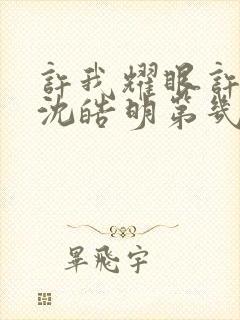 許我耀眼許
沈皓明第幾
畢飛宇